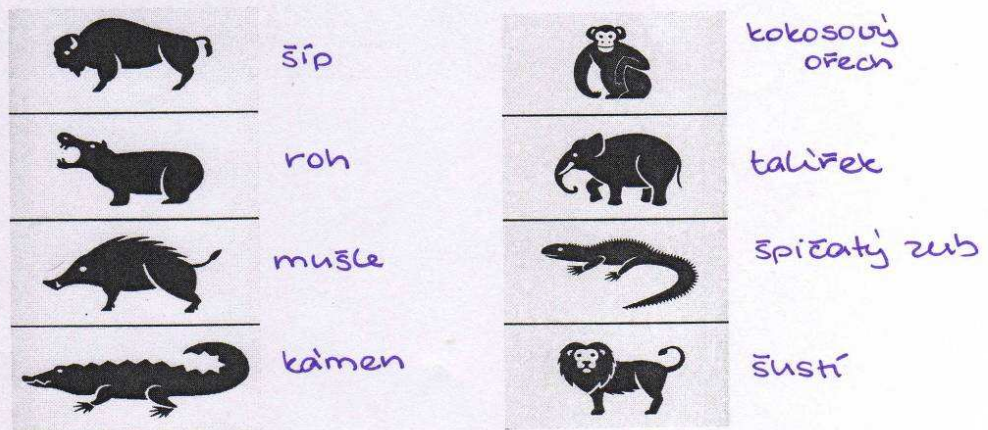 šíp
roh
mušle
kámen
kokosový
ořech
talířek
špičatý zub
šustí